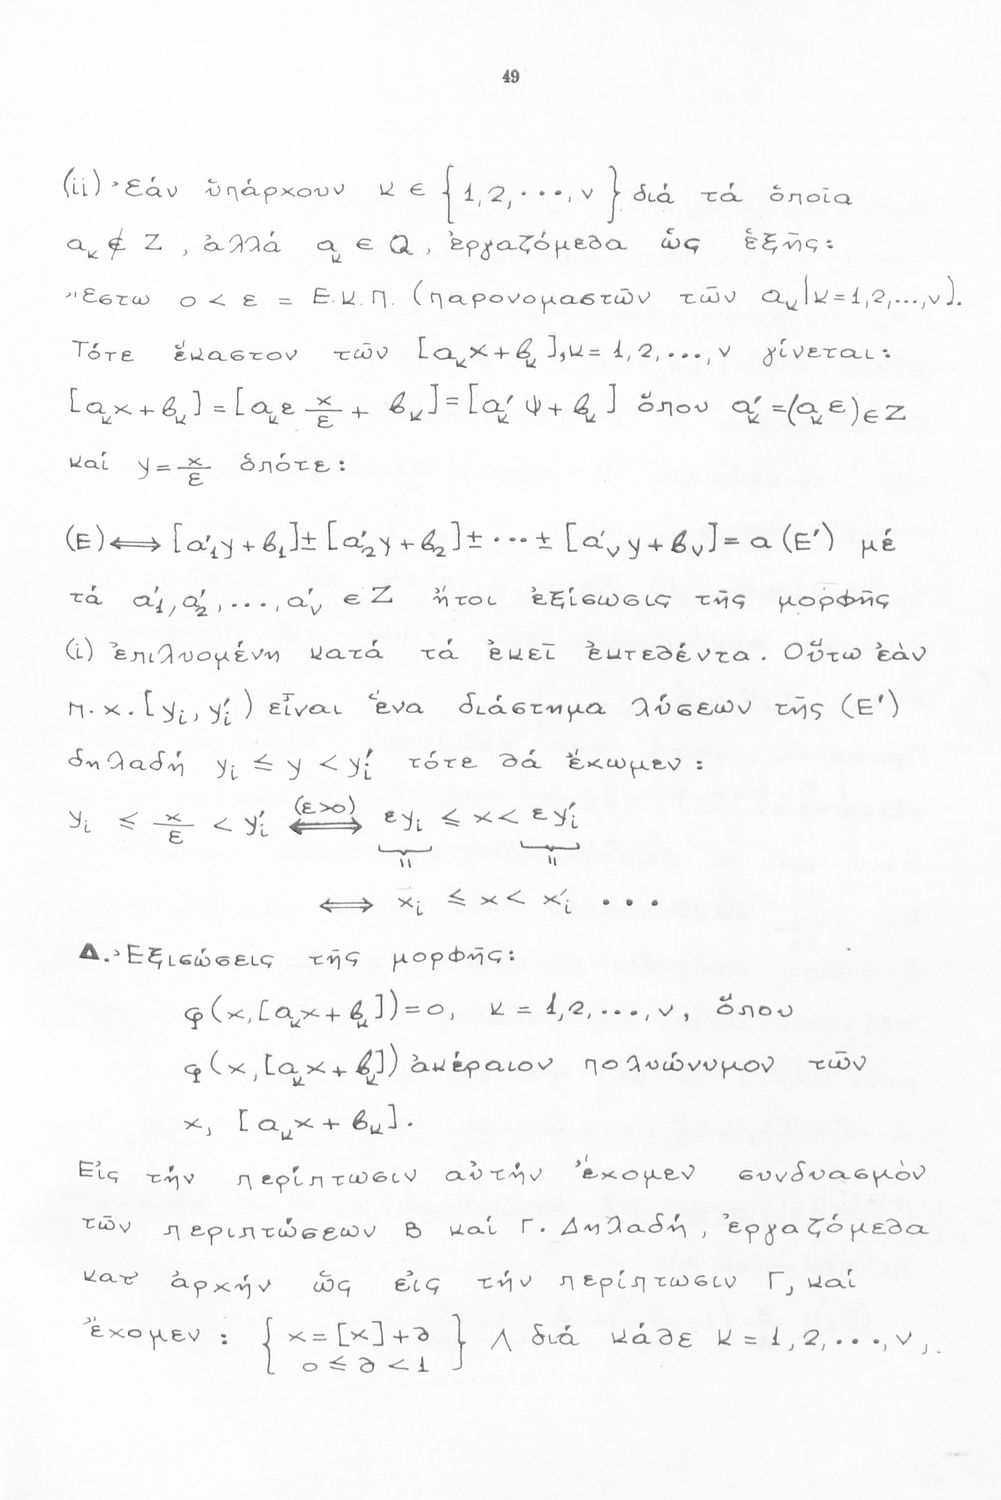 49
(ii) Ἐάν ὑπάρχουν κ ∈ {1,2,...,ν} διά τά ὁποῖα
α_κ ∉ Z , ἀλλά α_κ ∈ Q, ἐργαζόμεθα ὡς ἑξῆς:
Ἔστω 0 < ε = Ε.Κ.Π. (παρονομαστῶν τῶν α_κ|κ=1,2,...,ν).
Τότε ἕκαστον τῶν [α_κ x + β_κ], κ = 1,2,...,ν γίνεται:
[α_κ x + β_κ] = [α_κ ε x/ε + β_κ] = [α'_κ ψ + β_κ] ὅπου α'_κ = (α_κ ε) ∈ Z
καί y = x/ε ὁπότε:
(Ε) ⟺ [α'_1 y + β_1] ± [α'_2 y + β_2] ± ... ± [α'_ν y + β_ν] = α (Ε') μέ
τά α'_1, α'_2, ..., α'_ν ∈ Z ἤτοι ἐξίσωσις τῆς μορφῆς
(i) ἐπιλυομένη κατά τά ἐκεῖ ἐκτεθέντα. Οὕτω ἐὰν
π.χ. [y_i, y'_i) εἶναι ἕνα διάστημα λύσεων τῆς (Ε')
δηλαδή y_i ≤ y < y'_i τότε θά ἔχωμεν:
y_i ≤ x/ε < y'_i (ε>0) ⟺ εy_i ≤ x < εy'_i
= =
⟺ x_i ≤ x < x'_i ...
Δ. Ἐξισώσεις τῆς μορφῆς:
φ(x,[α_κ x + β_κ]) = 0, κ = 1,2,...,ν, ὅπου
φ(x,[α_κ x + β_κ]) ἀκέραιον πολυώνυμον τῶν
x, [α_κ x + β_κ].
Εἰς τήν περίπτωσιν αὐτήν ἔχομεν συνδυασμὸν
τῶν περιπτώσεων Β καί Γ. Δηλαδή, ἐργαζόμεθα
κατ' ἀρχήν ὥς εἰς τήν περίπτωσιν Γ, καί
ἔχομεν : { x = [x] + ∂ } ∧ διά κάθε κ = 1,2,...,ν,
0 ≤ ∂ < 1